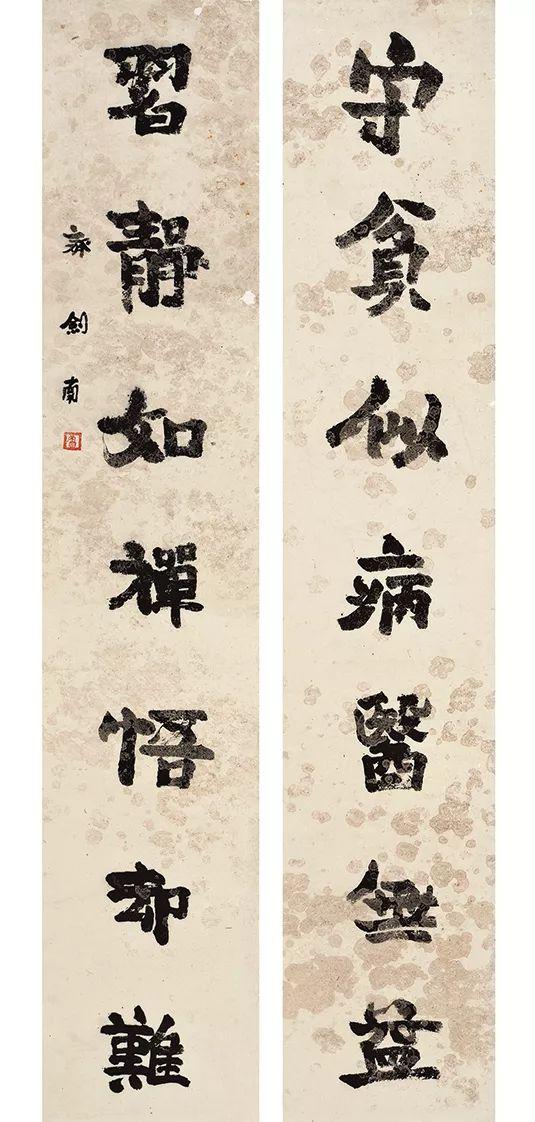 守貧似病醫無益
習靜如禪悟却難
齊劍南